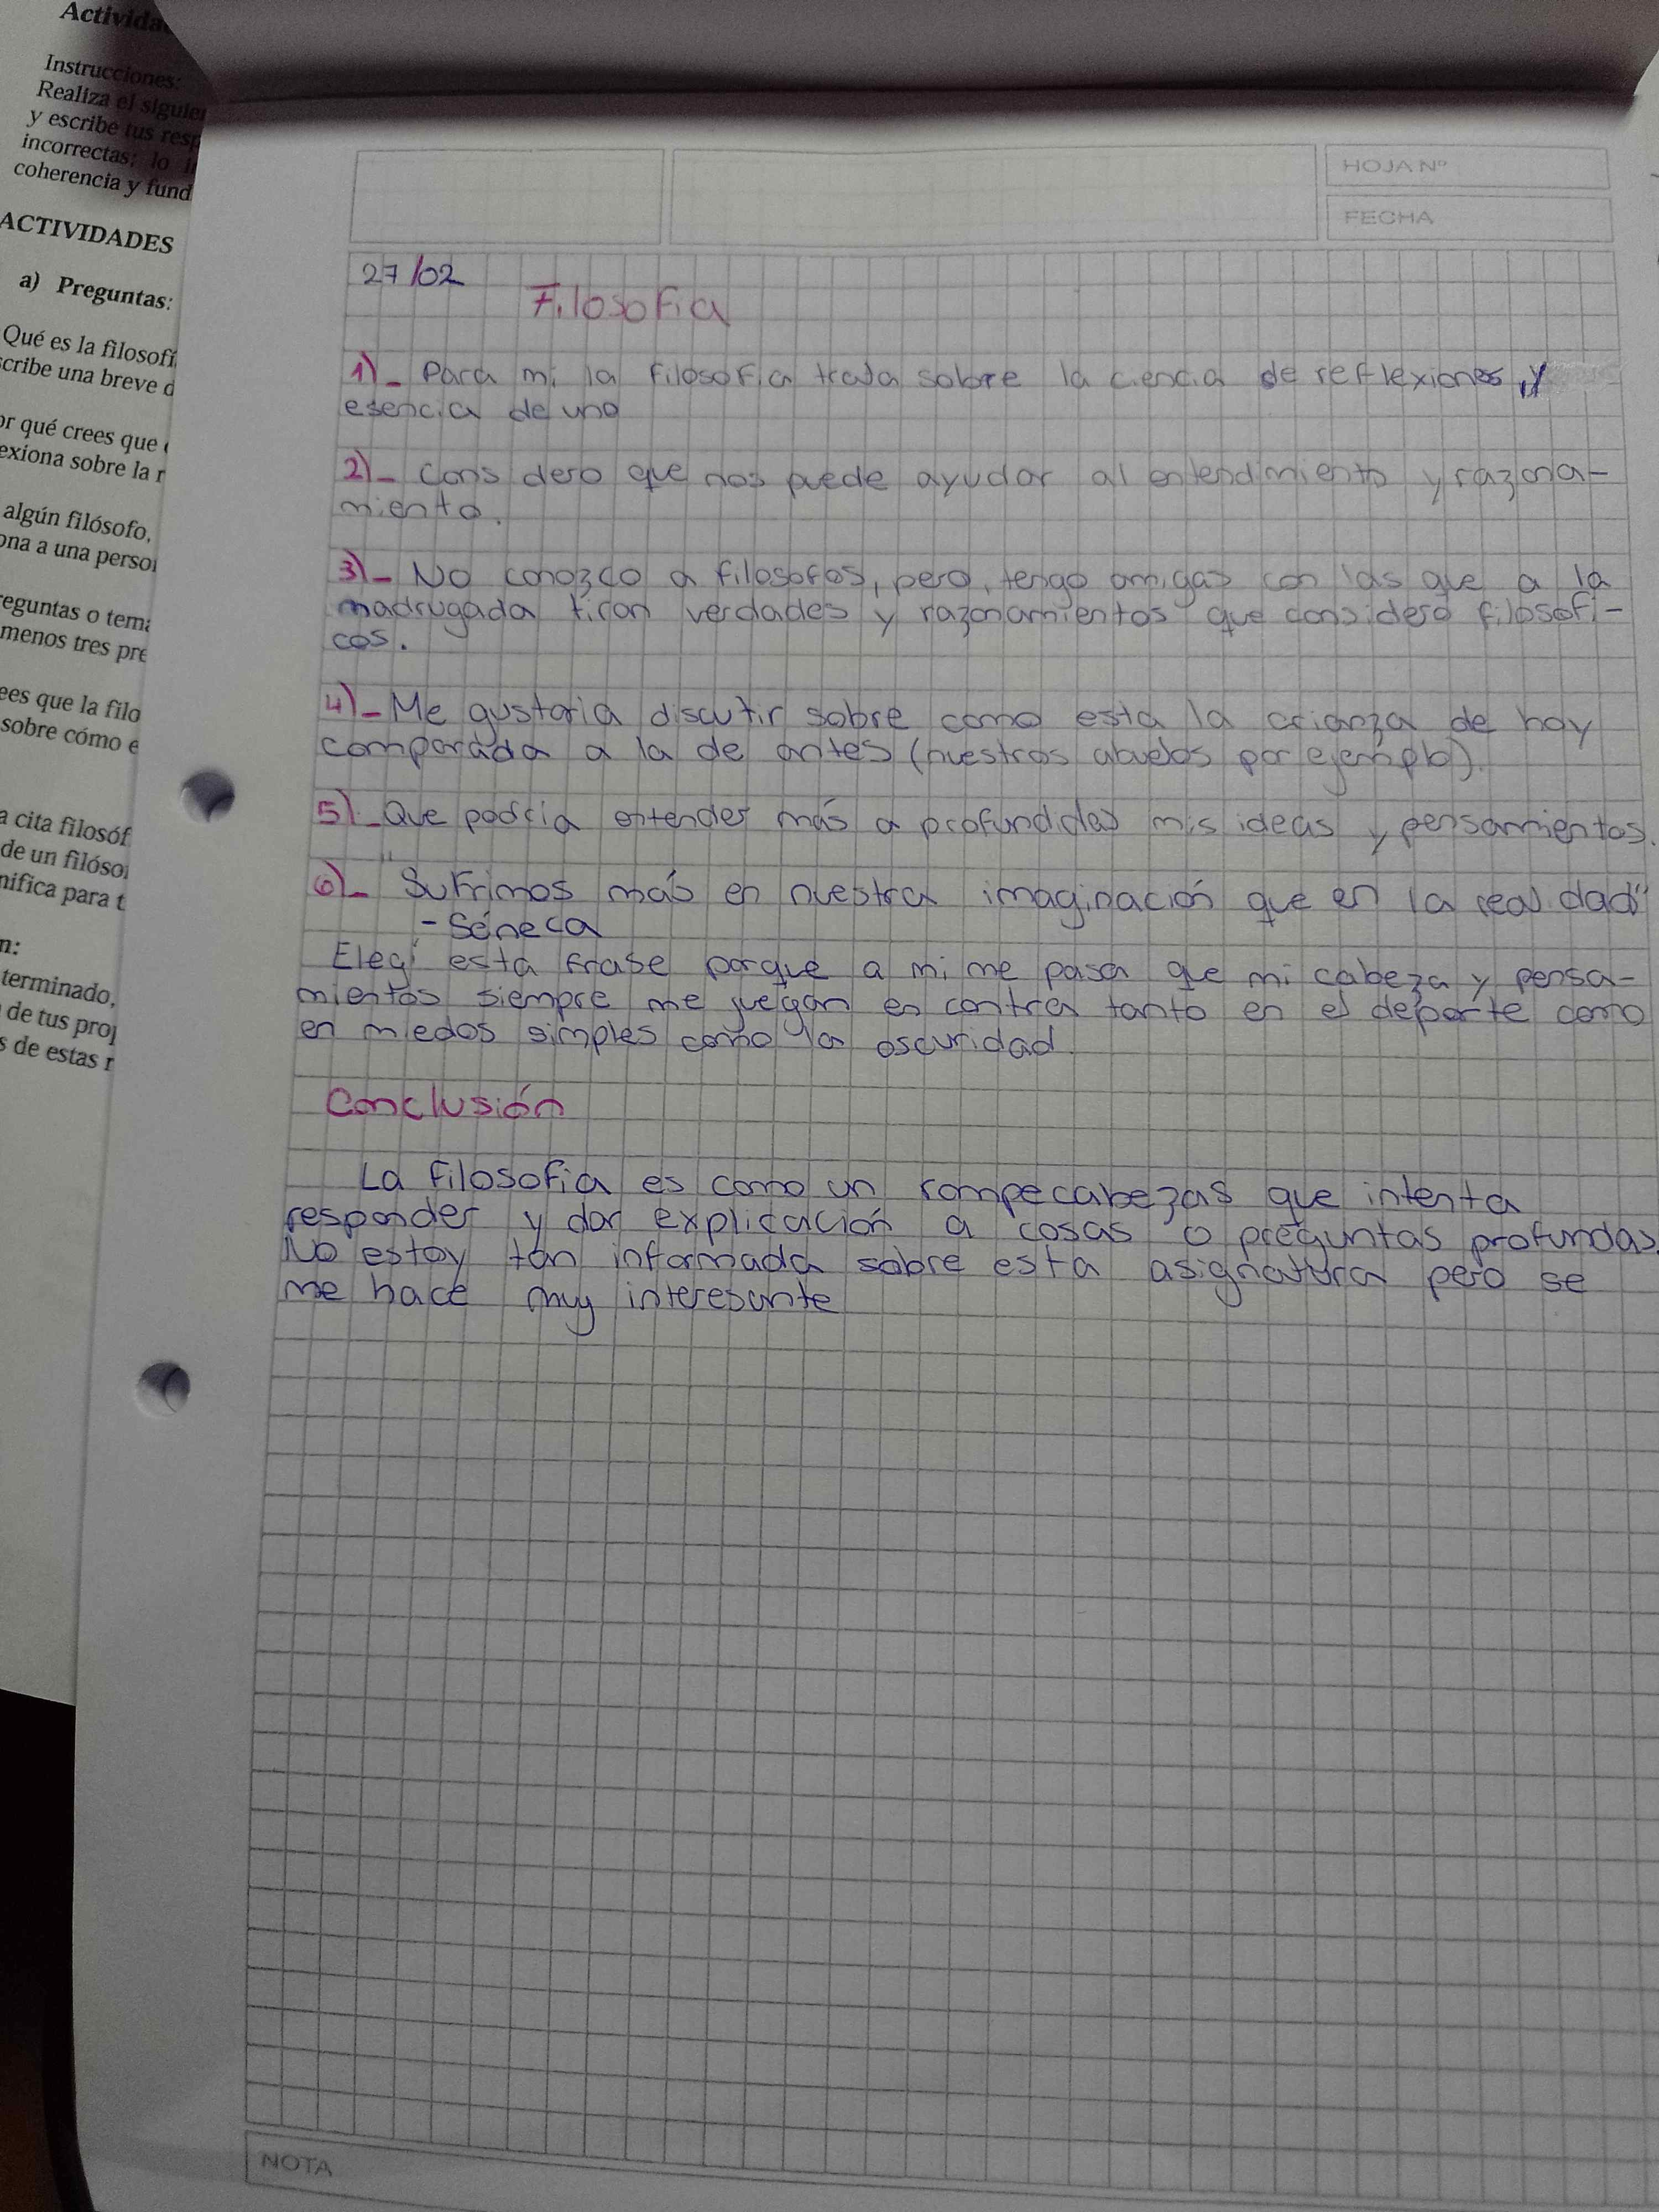 Activida
Instrucciones:
Realiza el siguien
y escribe tus resp
incorrectas; lo i
coherencia y fund
ACTIVIDADES
a) Preguntas:
Qué es la filosofí
cribe una breve d
or qué crees que
exiona sobre la r
algún filósofo,
ona a una perso
reguntas o tema
menos tres pre
ees que la filo
sobre cómo e
a cita filosóf
de un filóso
nifica para t
n:
terminado,
de tus prop
s de estas r
HOJA Nº
FECHA
27/02
Filosofia
1)- Para mi la filosofia trata sobre la ciencia de reflexiones, y
esencia de uno
2)- Considero que nos puede ayudar al entendimiento y razona-
miento.
3)- No conozco a filosofos, pero, tengo amigas con las que a la
madrugada tiran verdades y razonamientos que considero filosofi-
cos.
4)- Me gustaria discutir sobre como esta la crianza de hoy
comparada a la de antes (nuestros abuelos por ejemplo).
5)- Que podria entender más a profundidad mis ideas y pensamientos.
6)- "Sufrimos más en nuestra imaginación que en la realidad"
- Séneca
Elegí esta frase porque a mi me pasa que mi cabeza y pensa-
mientos siempre me juegan en contra tanto en el deporte como
en miedos simples como la oscuridad.
Conclusión
La filosofia es como un rompecabezas que intenta
responder y dar explicación a cosas o preguntas profundas.
No estoy tan informada sobre esta asignatura pero se
me hace muy interesante
NOTA